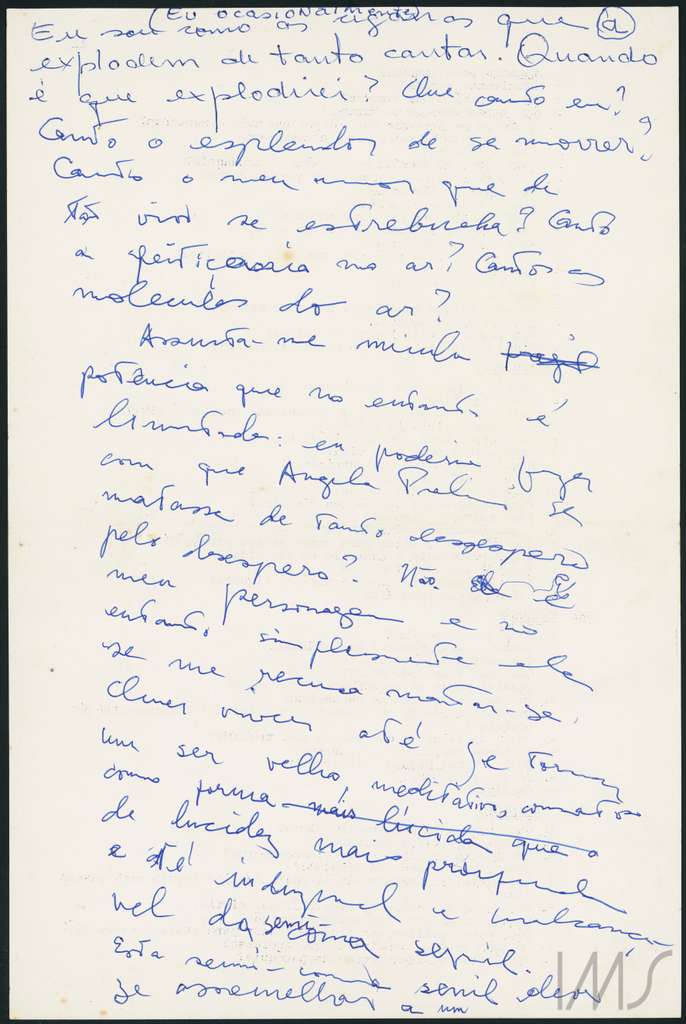 (Eu ocasionalmente)
Eu sou como as cigarras que a
explodem de tanto cantar. Quando
é que explodirei? Que canto eu?
Canto o esplendor de se morrer?
Canto o meu amor que de
tão vivo se estrebucha? Canto
a feitiçaria no ar? Canto as
moléculas do ar?
Assusta-me minha
potência que no entanto é
limitada: eu poderia fazer
com que Angela Pralini se
matasse de tanto desespero
pelo desespero? Não. É
meu personagem e no
entanto, simplesmente ela
se me recusa matar-se.
Quer viver até se tornar
um ser velho, meditativo, comatoso
como forma mais lúcida que a
de lucidez mais profunda
e até indizível e inalcançá-
vel da semi-coma senil.
Esta semi-coma senil deve
se assemelhar a um
IMS